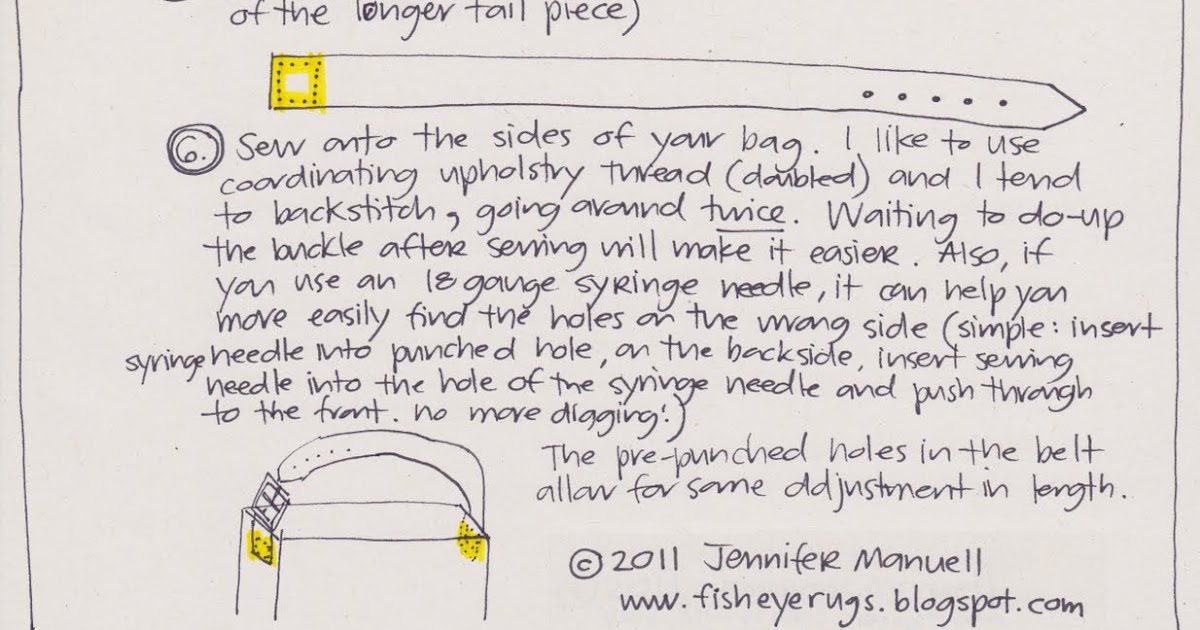 of the longer tail piece)
6. Sew onto the sides of your bag. I like to use
coordinating upholstry thread (doubled) and I tend
to backstitch, going around twice. Waiting to do-up
the buckle after sewing will make it easier. Also, if
you use an 18 gauge syringe needle, it can help you
more easily find the holes on the wrong side (simple: insert
syringe needle into punched hole, on the backside, insert sewing
needle into the hole of the syringe needle and push through
to the front. no more digging!)
The pre-punched holes in the belt
allow for some adjustment in length.
© 2011 Jennifer Manuell
www.fisheyerugs.blogspot.com